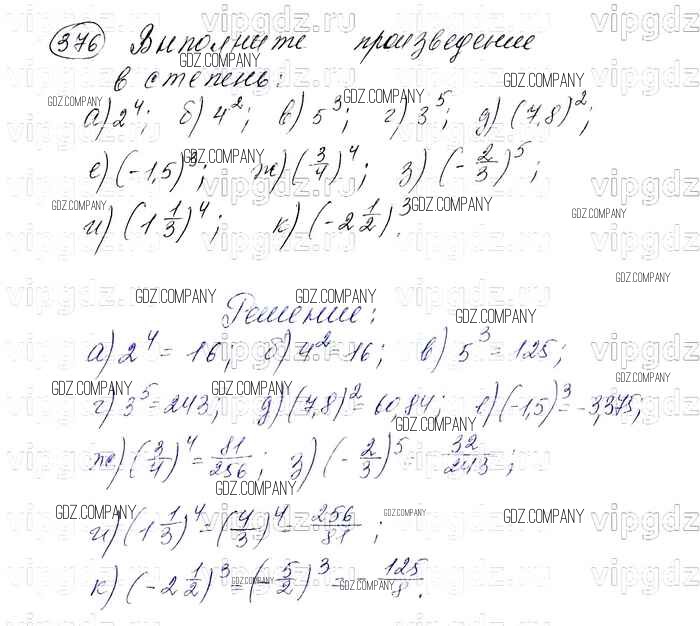 376 Выполните произведение
в степень:
а) 2^4; б) 4^2; в) 5^3; г) 3^5; д) (7,8)^2;
е) (-1,5)^3; ж) (3/4)^4; з) (-2/3)^5;
и) (1 1/3)^4; к) (-2 1/2)^3.
Решение:
а) 2^4 = 16; б) 4^2 = 16; в) 5^3 = 125;
г) 3^5 = 243; д) (7,8)^2 = 60,84; е) (-1,5)^3 = -3,375;
ж) (3/4)^4 = 81/256; з) (-2/3)^5 = 32/243;
и) (1 1/3)^4 = (4/3)^4 = 256/81;
к) (-2 1/2)^3 = (-5/2)^3 = -125/8.
GDZ.COMPANY
vipgdz.ru